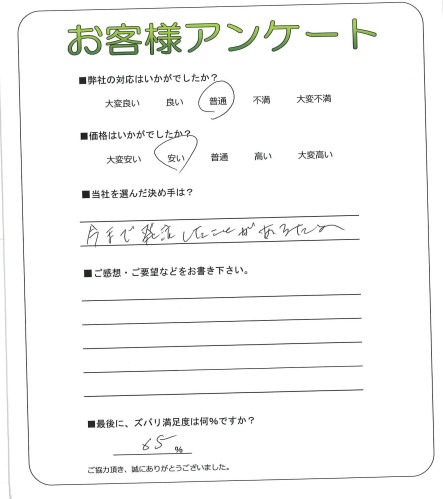 お客様アンケート
■弊社の対応はいかがでしたか？
大変良い 良い 普通 不満 大変不満
■価格はいかがでしたか？
大変安い 安い 普通 高い 大変高い
■当社を選んだ決め手は？
今まで発注したことがあるため
■ご感想・ご要望などをお書き下さい。
■最後に、ズバリ満足度は何％ですか？
65 %
ご協力頂き、誠にありがとうございました。